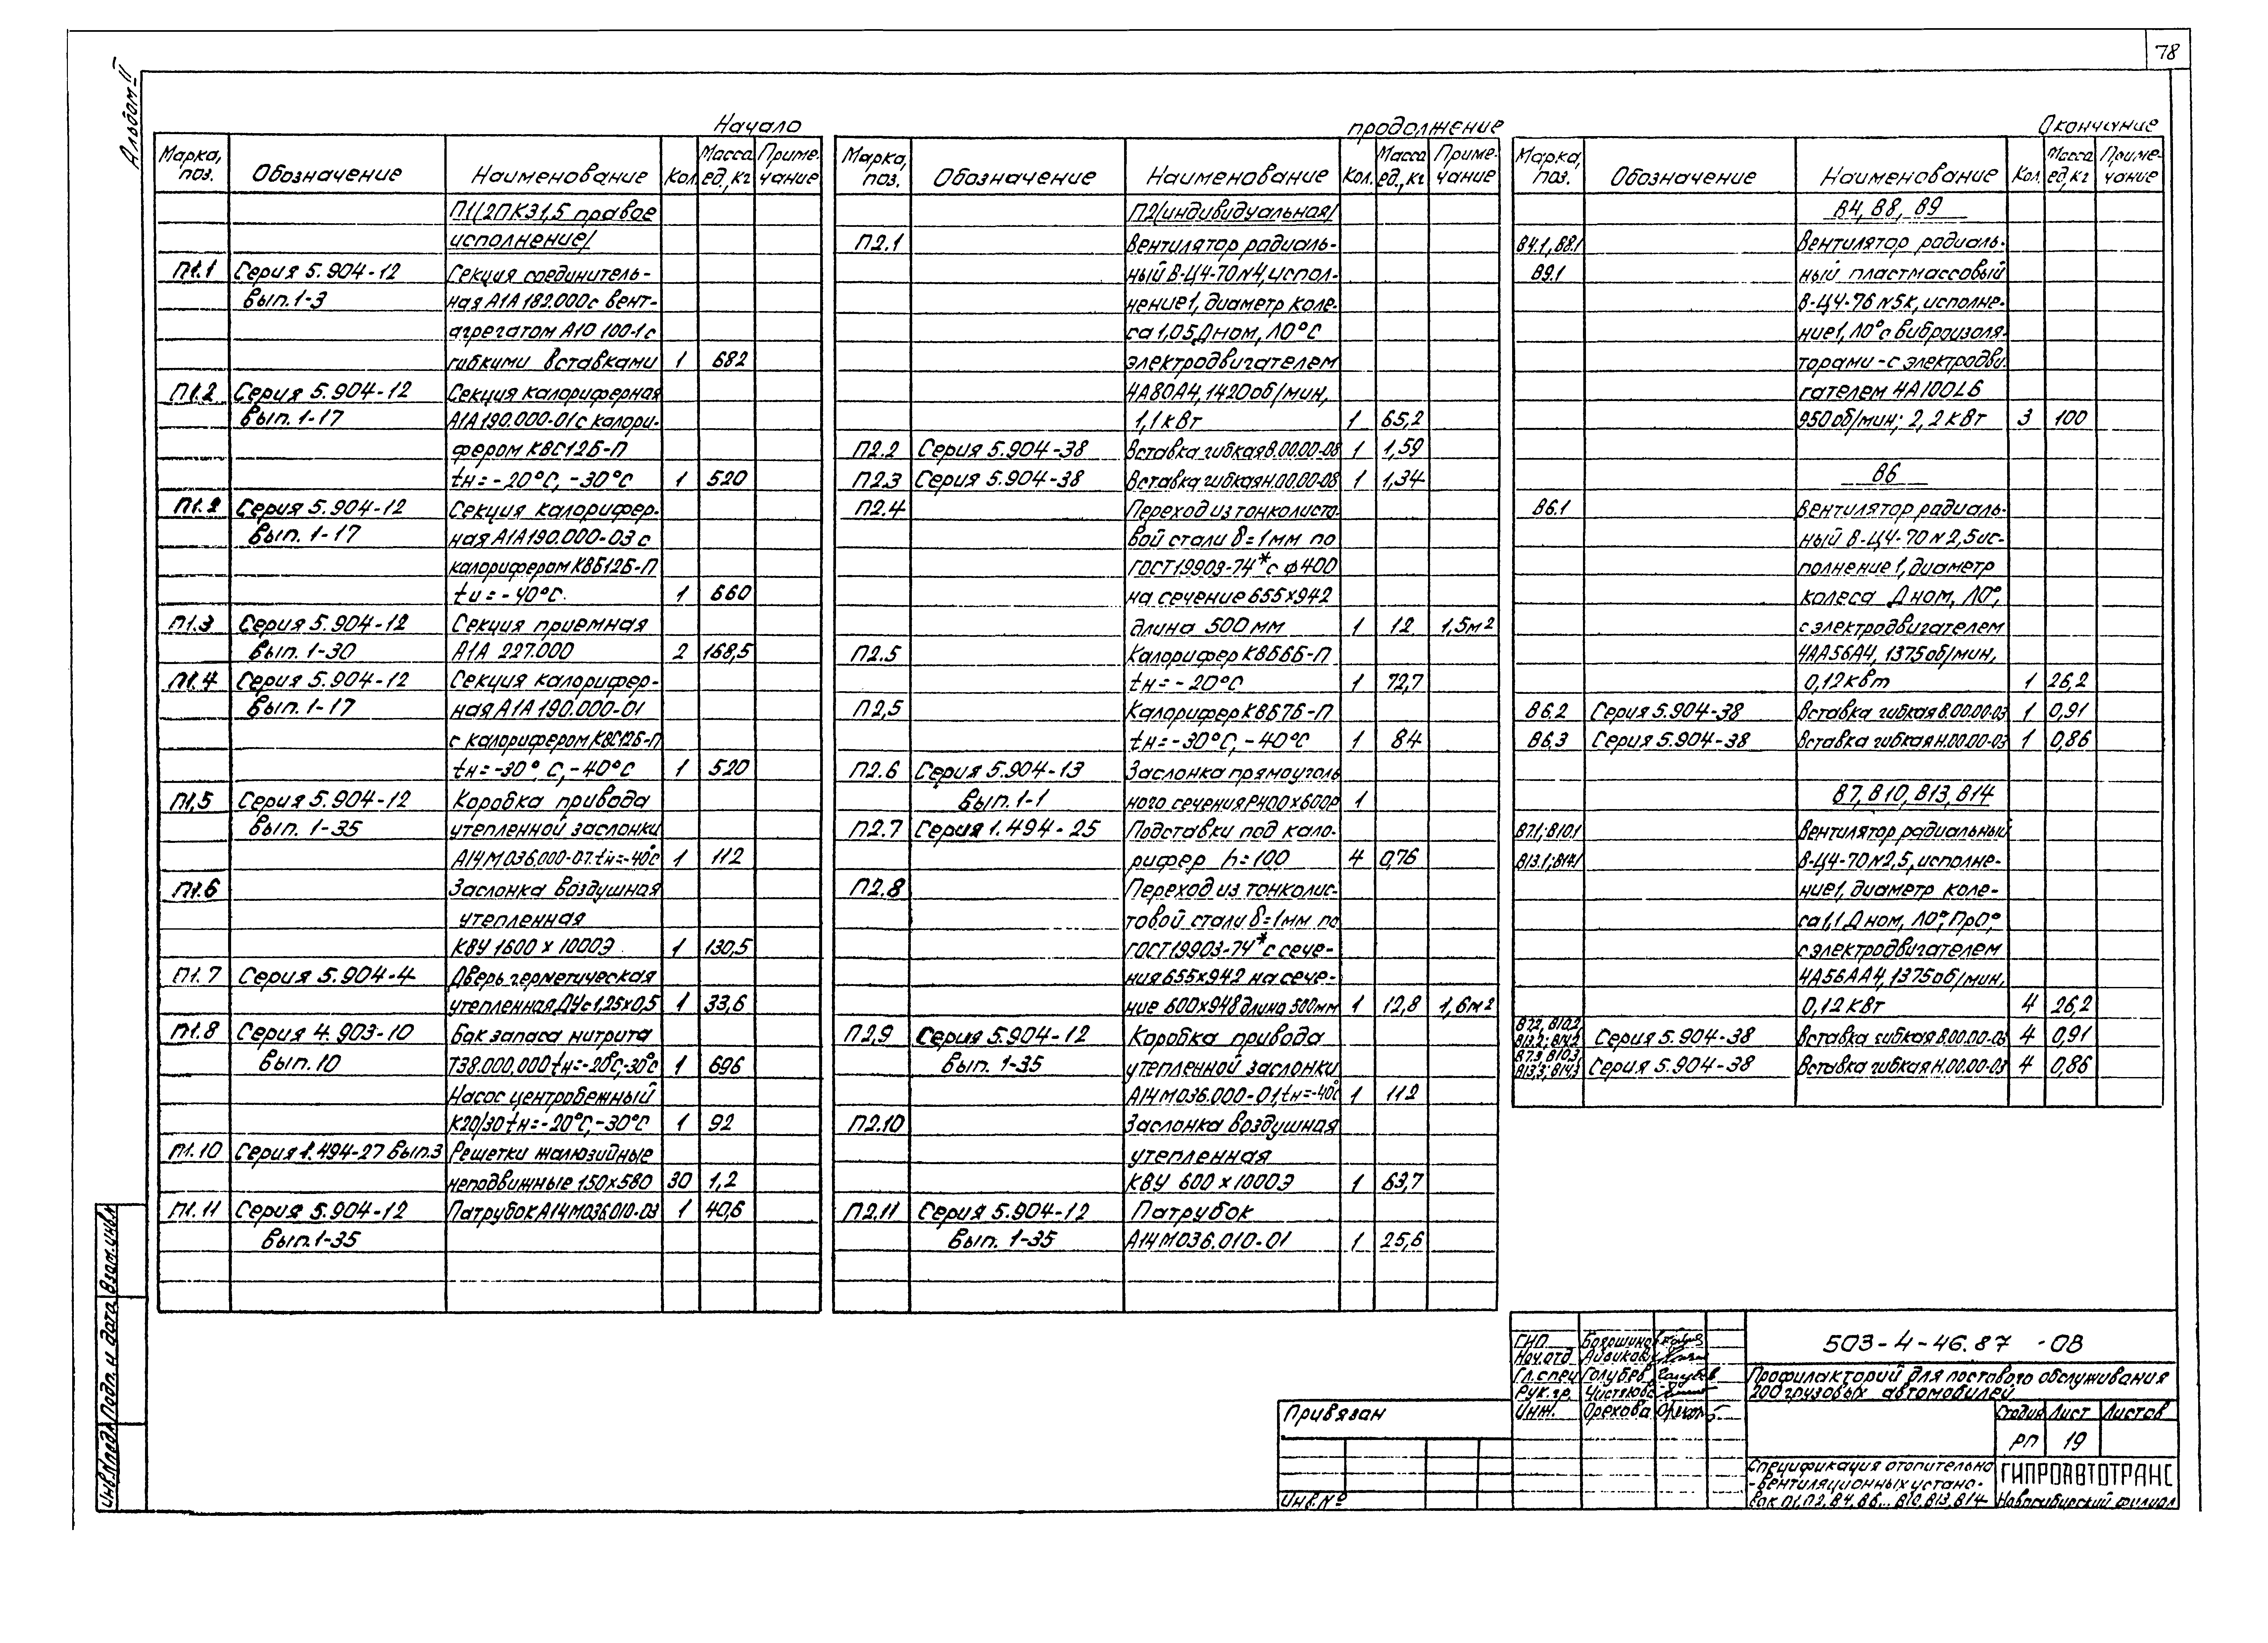 78
Альбом II
Начало
Марка, поз. Обозначение Наименование Кол. Масса ед, кг Приме-чание
П1(2ПК31,5 правое
исполнение)
П1.1 Серия 5.904-12 Секция соединитель-
вып. 1-3 ная А1А 182.000 с вент-
агрегатом А10 100-1 с
гибкими вставками 1 682
П1.2 Серия 5.904-12 Секция калориферная
вып. 1-17 А1А190.000-01 с калори-
фером КВС12Б-П
tн = -20°С, -30°С 1 520
П1.2 Серия 5.904-12 Секция калорифер-
вып. 1-17 ная А1А190.000-03 с
калорифером КВБ12Б-П
tн = -40°С. 1 660
П1.3 Серия 5.904-12 Секция приемная
вып. 1-30 А1А 227.000 2 168,5
П1.4 Серия 5.904-12 Секция калорифер-
вып. 1-17 ная А1А 190.000-01
с калорифером КВС12Б-П
tн = -30° С, -40°С 1 520
П1,5 Серия 5.904-12 Коробка привода
вып. 1-35 утепленной заслонки
А14М 036.000-07. tн = -40°С 1 112
П1.6 Заслонка воздушная
утепленная
КВУ 1600 х 1000Э 1 130,5
П1.7 Серия 5.904-4 Дверь герметическая
утепленная ДУс 1,25х0,5 1 33,6
П1.8 Серия 4.903-10 Бак запаса нитрита
Вып. 10 Т38.000.000 tн = -20°С, -30°С 1 696
Насос центробежный
К20/30 tн = -20°С, -30°С 1 92
П1.10 Серия 1.494-27 вып.3 Решетки жалюзийные
неподвижные 150х580 30 1,2
П1.11 Серия 5.904-12 Патрубок А14М036.010-03 1 40,6
Вып. 1-35
продолжение
Марка, поз. Обозначение Наименование Кол. Масса ед., кг Приме-чание
П2(индивидуальная)
П2.1 Вентилятор радиаль-
ный В-Ц4-70 N4, испол-
нение 1, диаметр коле-
са 1,05 Дном, Л0° С
электродвигателем
4А80А4, 1420 об/мин,
1,1 кВт 1 65,2
П2.2 Серия 5.904-38 Вставка гибкая В.00.00-08 1 1,59
П2.3 Серия 5.904-38 Вставка гибкая Н.00.00-08 1 1,34
П2.4 Переход из тонколисто
вой стали δ=1мм по
ГОСТ 19903-74* с ф400
на сечение 655х942
длина 500 мм 1 12 1,5м2
П2.5 Калорифер КВБ6Б-П
tн = -20°С 1 72,7
П2,5 Калорифер КВБ7Б-П
tн = -30°С, -40°С 1 84
П2.6 Серия 5.904-13 Заслонка прямоуголь
Вып. 1-1 ного сечения Р400х600Р 1
П2.7 Серия 1.494-25 Подставки под кало-
рифер h=100 4 0,76
П2.8 Переход из тонколис-
товой стали δ=1мм по
ГОСТ19903-74* с сече-
ния 655х942 на сече-
ние 600х948 длина 500мм 1 12,8 1,6м2
П2,9 Серия 5.904-12 Коробка привода
Вып. 1-35 утепленной заслонки
А14М036.000-01, tн = -40°С 1 112
П2.10 Заслонка воздушная
утепленная
КВУ 600 х 1000Э 1 63,7
П2.11 Серия 5.904-12 Патрубок
Вып. 1-35 А14М036.010-01 1 25,6
Окончание
Марка, поз. Обозначение Наименование Кол. Масса ед, кг Приме-чание
В4, В8, В9
В4.1, В8.1 Вентилятор радиаль-
В9.1 ный пластмассовый
В-Ц4-76 N5К, исполне-
ние1, Л0° с виброизоля-
торами - с электродви-
гателем 4А100L6
950 об/мин; 2,2 кВт 3 100
В6
В6.1 Вентилятор радиаль-
ный В-Ц4-70 N 2,5 ис-
полнение 1, диаметр
колеса Дном, Л0°,
с электродвигателем
4АА56А4, 1375 об/мин,
0,12 кВт 1 26,2
В6.2 Серия 5.904-38 Вставка гибкая В.00.00-03 1 0,91
В6.3 Серия 5.904-38 Вставка гибкая Н.00.00-03 1 0,86
В7, В10, В13, В14
В7.1; В10.1 Вентилятор радиальный
В13.1; В14.1 В-Ц4-70 N2,5, исполне-
ние 1, диаметр коле-
са 1,1 Дном, Л0°, Пр0°,
с электродвигателем
4А56АА4, 1375 об/мин,
0,12 кВт 4 26,2
В7.2, В10.2
В13.2; В14.2 Серия 5.904-38 Вставка гибкая В.00.00-03 4 0,91
В7.3, В10.3
В13.3; В14.3 Серия 5.904-38 Вставка гибкая Н.00.00-03 4 0,86
ГИП
Нач.отд
Гл.спец Голубев
Рук.гр.
Инж. Орехова
503-4-46.87 -08
Профилакторий для постового обслуживания
200 грузовых автомобилей
Стадия Лист Листов
РП 19
Спецификация отопительно
-вентиляционных устано-
вок П1, П2, В4, В6... В10, В13, В14
ГИПРОАВТОТРАНС
Новосибирский филиал
Привязан
Инв.№
Инв.№подл. Подп. и дата Взам.инв.№